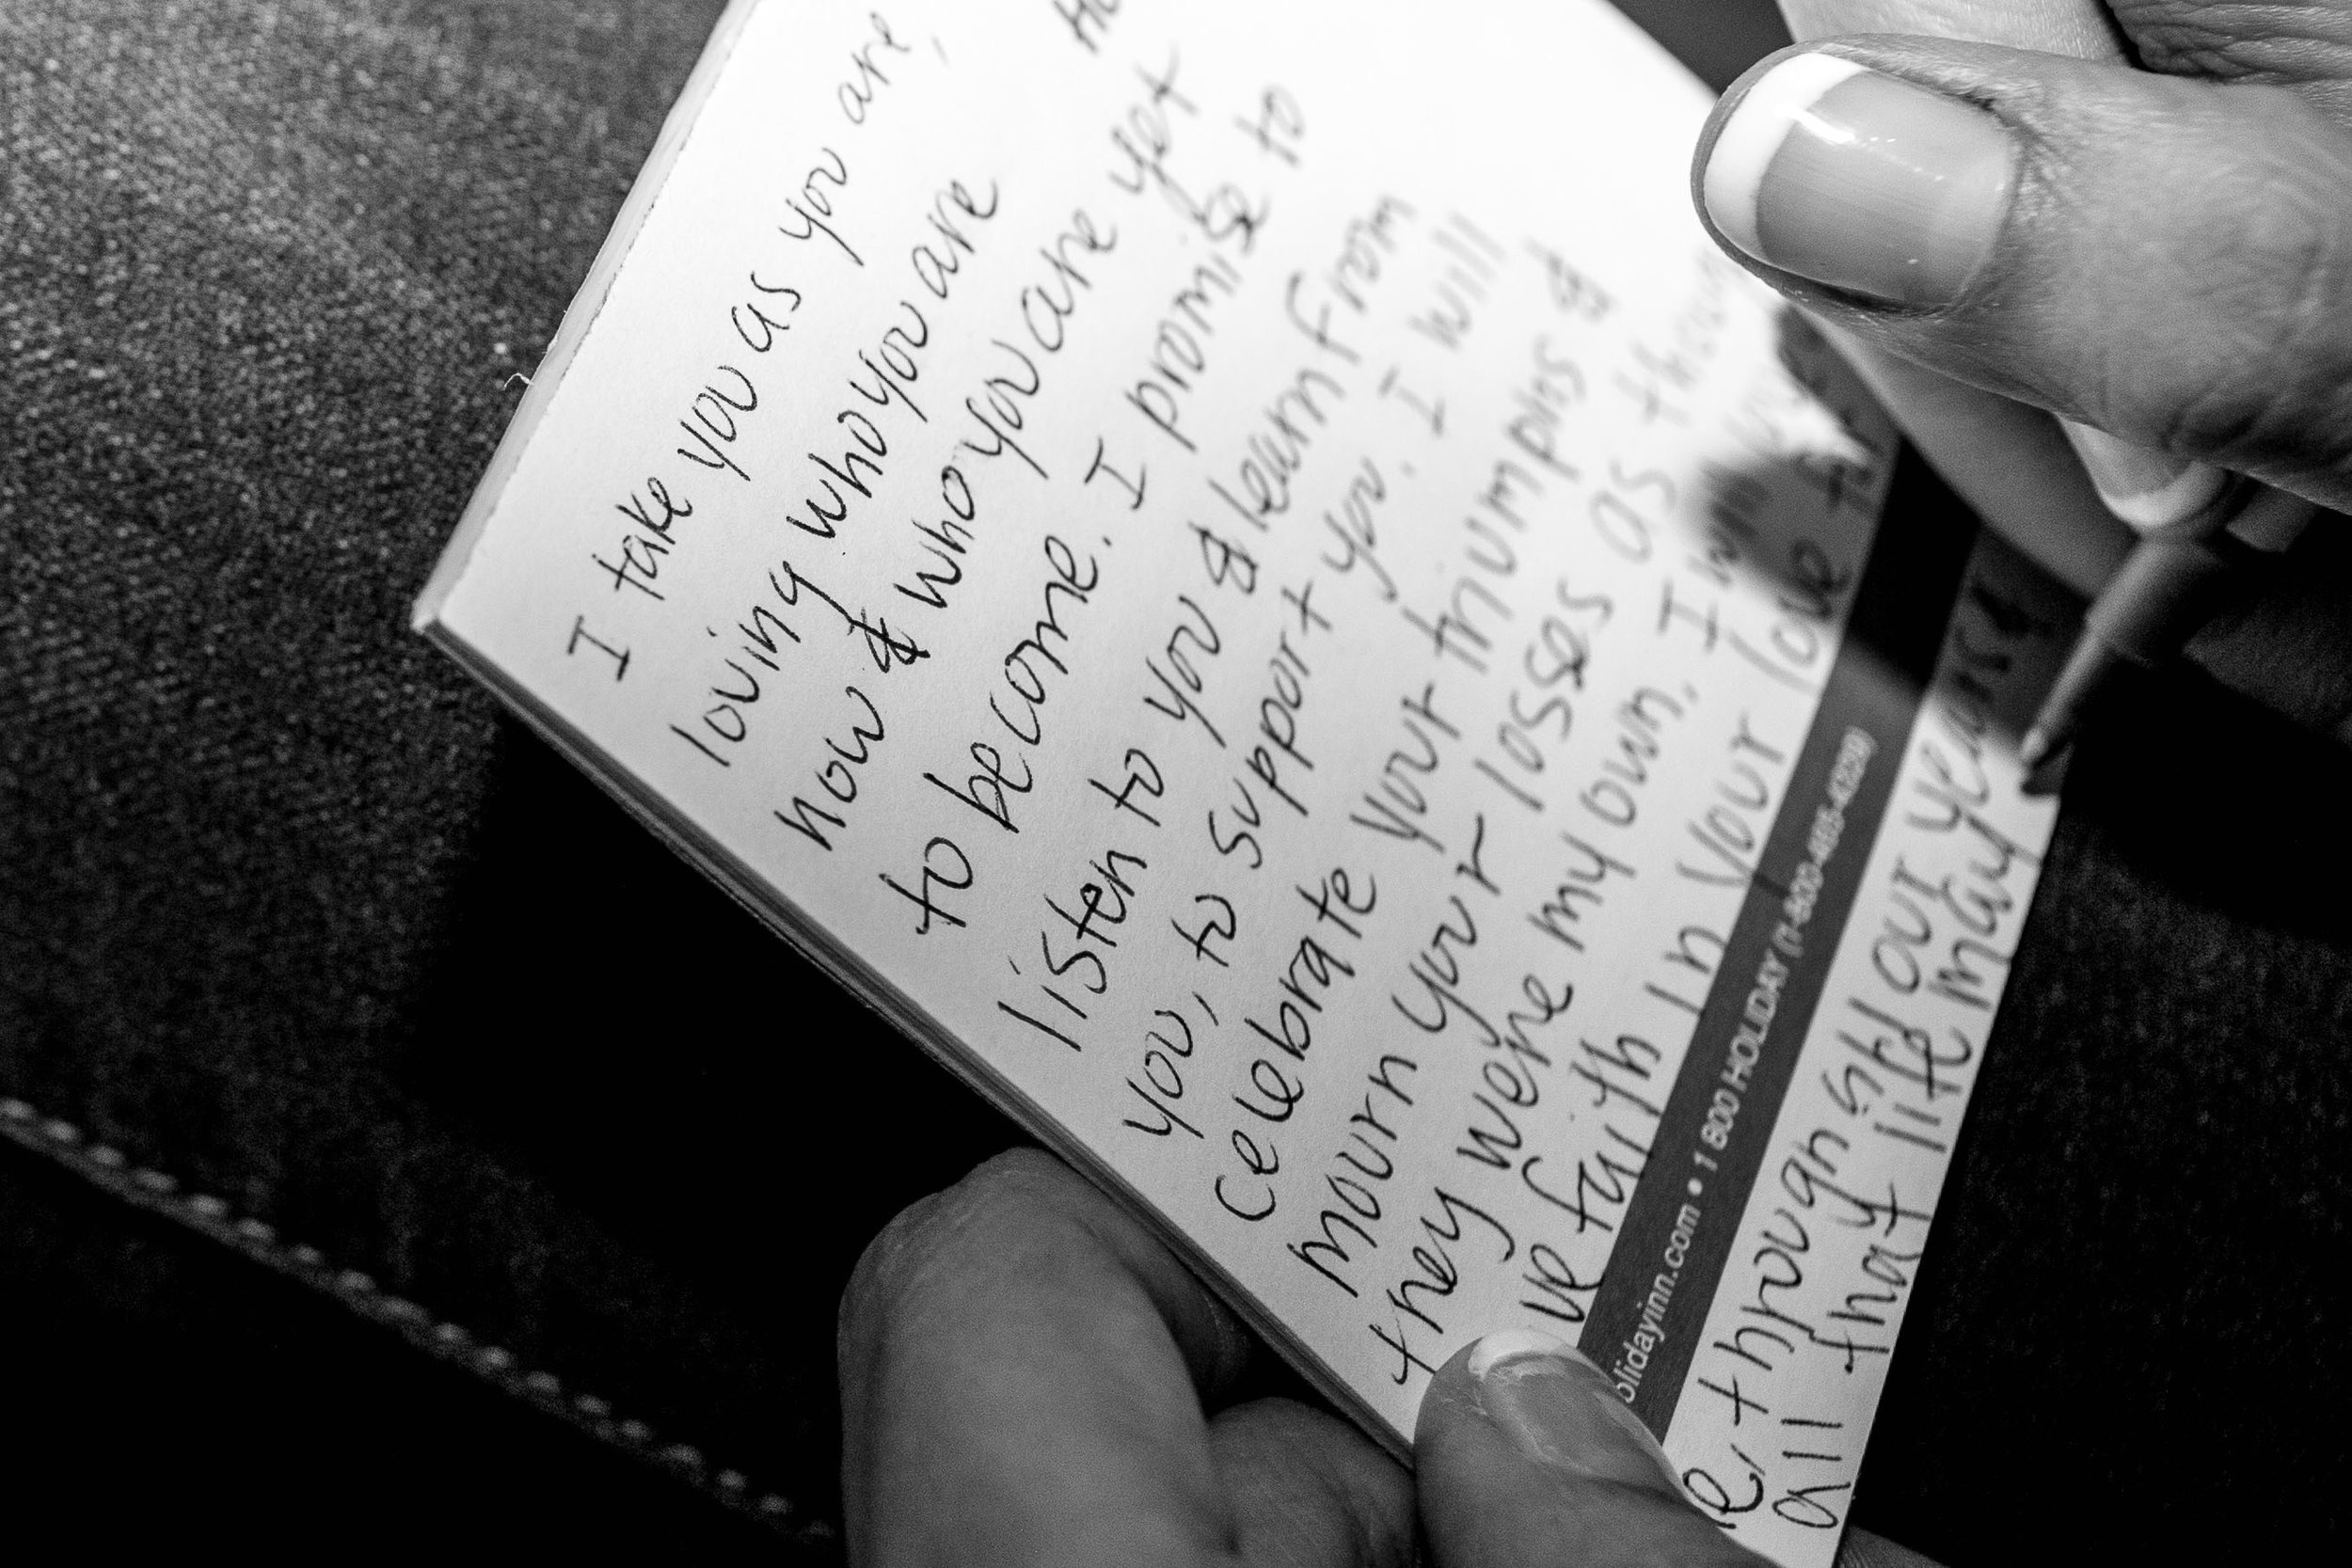 I take you as you are,
loving who you are
now & who you are yet
to become. I promise to
listen to you & learn from
you, to support you. I will
celebrate your triumphs &
mourn your losses as
they were my own. I will
ve faith in your love
olidayinn.com • 1 800 HOLIDAY (1-800-465-4329)
e, through all our years &
all that life may